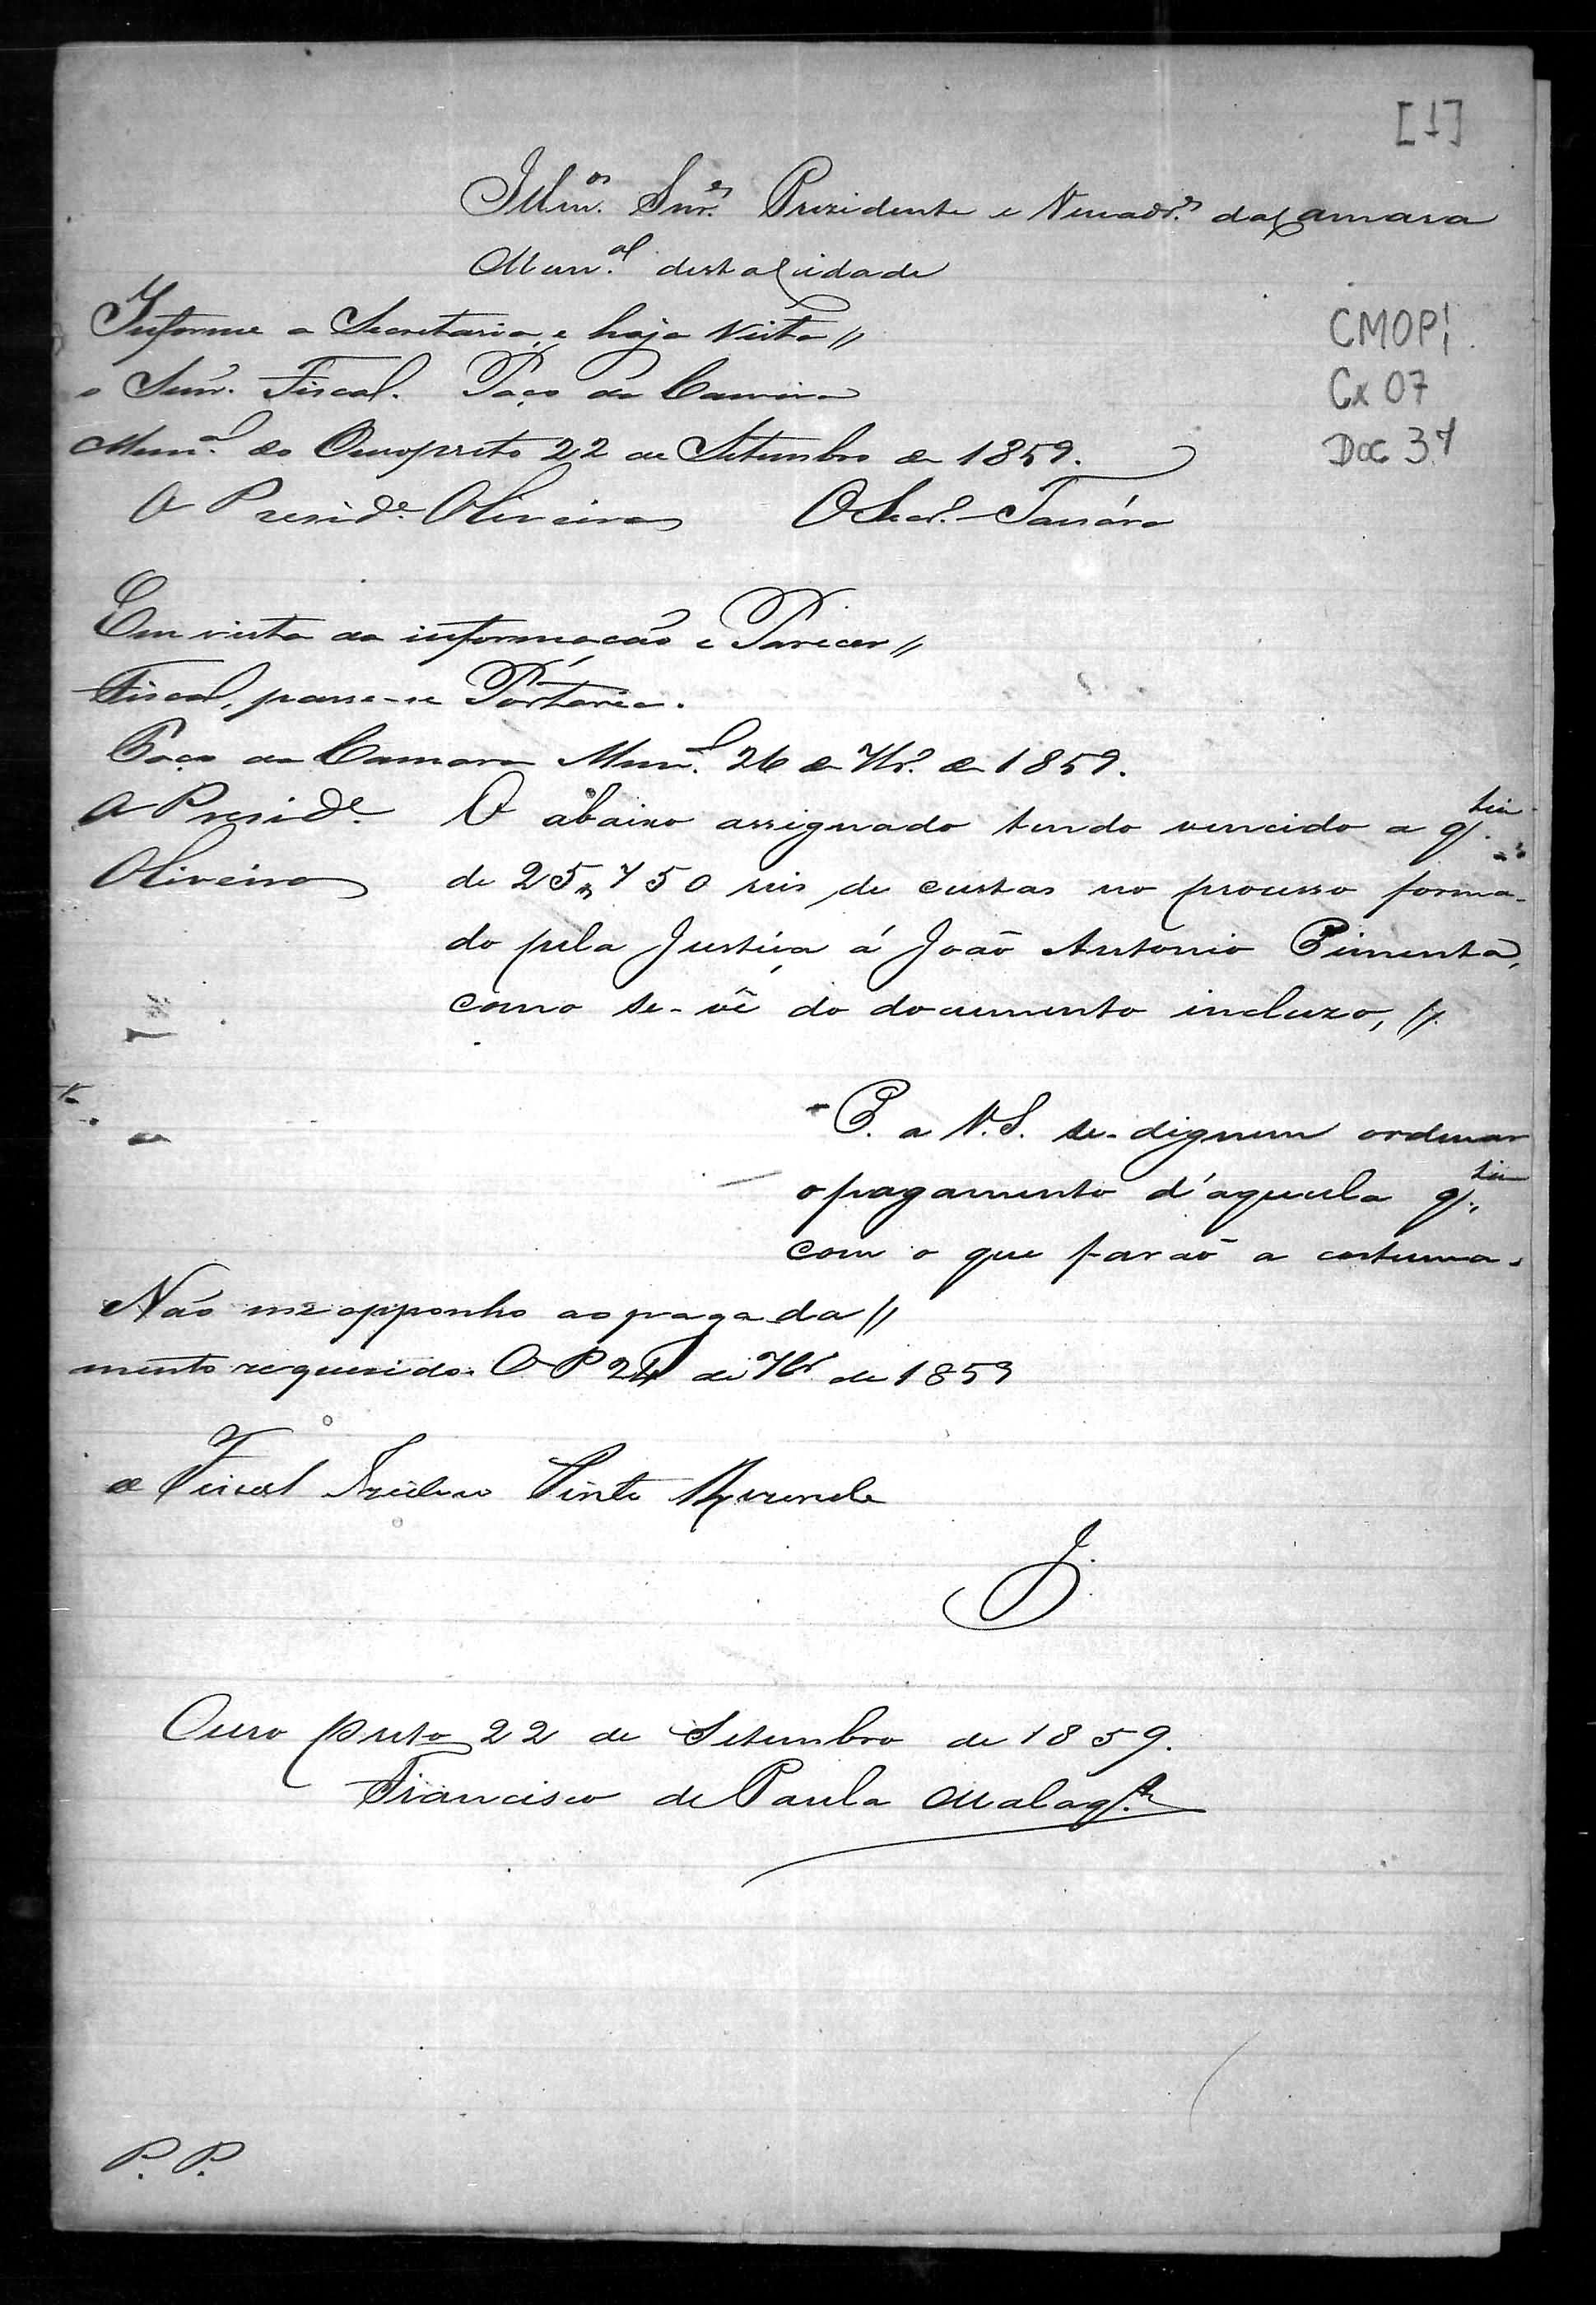 [1]
Illm.os Snr.es Prezidente e Veriador.es da Camara
Mun.al desta Cidade
CMOP/
Cx 07
Doc 37
Informe a Secretaria, e haja vista //
o Snr. Fiscal. Paço da Camara
Mun.al do Ouropreto 22 de Setembro de 1859.
O Presid.e Oliveira O Secr.
Em vista da informação e Parecer //
Fiscal, passe-se Portaria.
Paço da Camara Mun.al 26 de 7br.o de 1859.
O Presid.e
Oliveira
O abaixo assignado tendo vencido a q.tia
de 25,,750 reis de custas no processo forma-
do pela Justiça á João Antonio Pimenta,
como se-vê do documento incluzo, //.
P. a V.S. se-dignem ordenar
o pagamento d'aquela q.tia,
com o que farão a costuma-
da //
Não me opponho ao paga
mento requerido. O P 24 de 7br de 1859
o Fiscal Pinto
J.
Ouro preto 22 de Setembro de 1859.
Francisco de Paula Malag.
P. P.